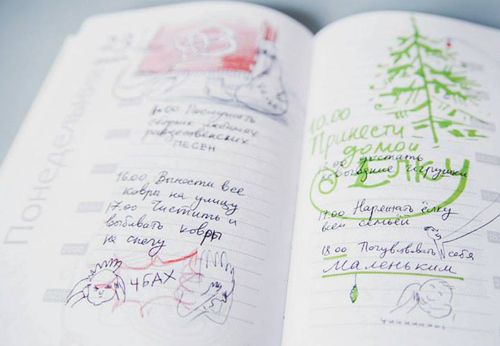 Понедельник
18
Послушать
сборник любимых
рождественских
ПЕСЕН
16.00 Вынести все
ковры на улицу
17.00 Чистить и
выбивать ковры
на снегу
ЧБАХ
10.00
Принести
домой
ЁЛКУ
достать
новогодние игрушки
17.00 Наряжать ёлку
всей семьёй
18.00 Почувствовать себя
Маленьким